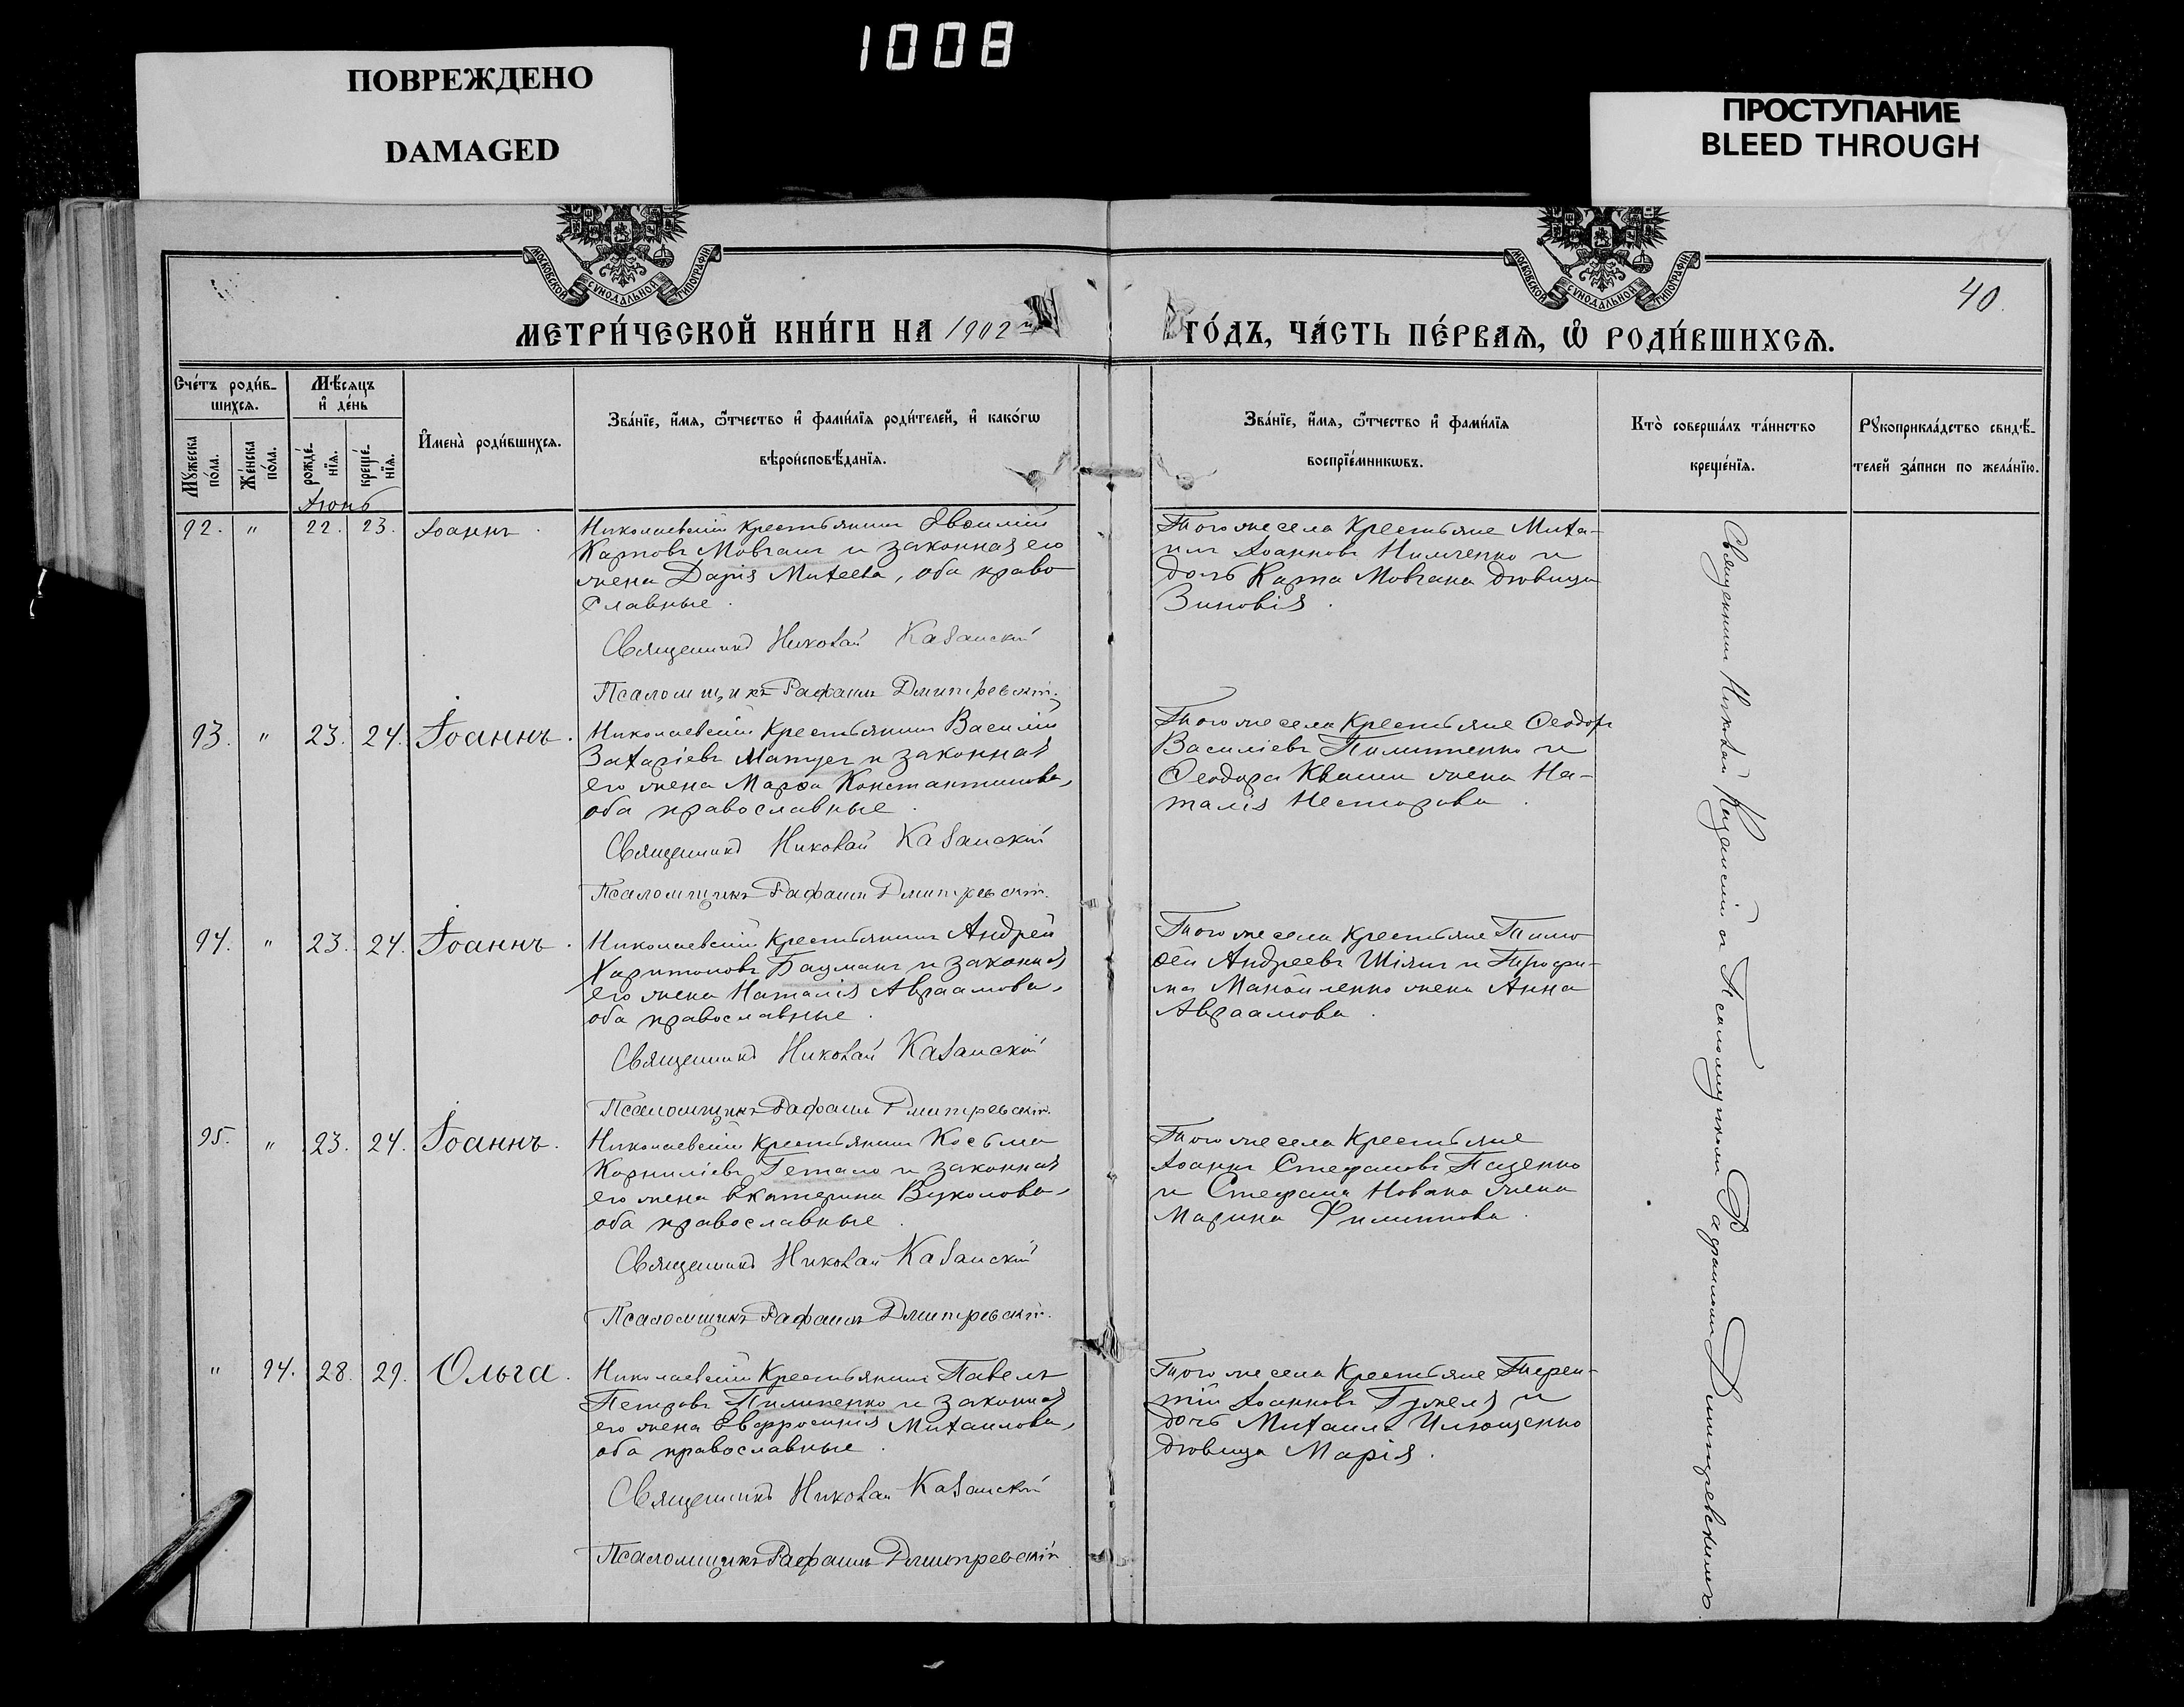 1008
ПОВРЕЖДЕНО
DAMAGED
ПРОСТУПАНИЕ
BLEED THROUGH
МОСКОВСКОЙ СѴНОДАЛЬНОЙ ТИПОГРАФІИ
МОСКОВСКОЙ СѴНОДАЛЬНОЙ ТИПОГРАФІИ
40.
МЕТРИ́ЧЕСКОЙ КНИ́ГИ НА 1902
ГО́ДЪ, ЧА́СТЬ ПЕ́РВАѦ, Ѡ҆ РОДИ́ВШИХСѦ.
Сче́тъ роди́в-
шихсѧ.
Мѣ́сѧцъ
и҆ де́нь
Мꙋ́жеска
по́ла.
Же́нска
по́ла.
рожде́-
нїѧ.
креще́-
нїѧ.
И҆мена̀ роди́вшихсѧ.
Зва́нїе, и҆́мѧ, ѻ҆́тчество и҆ фами́лїѧ роди́телей, и҆ како́гѡ
вѣроисповѣ́данїѧ.
Зва́нїе, и҆́мѧ, ѻ҆́тчество и҆ фами́лїѧ
воспрїе́мникѡвъ.
Кто̀ соверша́лъ та́инство
креще́нїѧ.
Рꙋкоприкла́дство свидѣ́-
телей за́писи по жела́нїю.
Іюнь
92. " 22. 23. Іоаннъ.
Николаевскій крестьянинъ
Карповъ Мовчанъ и законная его
жена Дарія Михеева, оба право
славные.
Священникъ Николай Казанскій
Псаломщикъ Рафаилъ Дмитревскій.
Того же села крестьяне Миха-
илъ Іоанновъ Нимченко и
дочь Карпа Мовчана дѣвица
Зиновія.
93. " 23. 24. Іоаннъ.
Николаевскій крестьянинъ Василій
Захаріевъ и законная
его жена Марѳа Константинова,
оба православные.
Священникъ Николай Казанскій
Псаломщикъ Рафаилъ Дмитревскій.
Того же села крестьяне Ѳеодоръ
Василіевъ Пилипенко и
Ѳеодора Кваши жена На-
талія Несторова.
94. " 23. 24. Іоаннъ.
Николаевскій крестьянинъ Андрей
Харитоновъ Бауманъ и законная
его жена Наталія Авраамова,
оба православные.
Священникъ Николай Казанскій
Псаломщикъ Рафаилъ Дмитревскій.
Того же села крестьяне Тимо
ѳей Андреевъ Шіянъ и Трофи-
ма Манойленко жена Анна
Авраамова.
95. " 23. 24. Іоаннъ.
Николаевскій крестьянинъ Косьма
Корниліевъ Гетало и законная
его жена Екатерина Вуколова,
оба православные.
Священникъ Николай Казанскій
Псаломщикъ Рафаилъ Дмитревскій.
Того же села крестьяне
Іоаннъ Стефановъ Паценко
и Стефана Новака жена
Марина Филиппова.
" 94. 28. 29. Ольга.
Николаевскій крестьянинъ Павелъ
Петровъ Пилипенко и законная
его жена Евфросинія Михаилова,
оба православные.
Священникъ Николай Казанскій
Псаломщикъ Рафаилъ Дмитревскій
Того же села крестьяне Терен-
тій Іоанновъ Гужеля и
дочь Михаила Илющенко
дѣвица Марія.
Священникъ Николай Казанскій съ Псаломщикомъ Рафаиломъ Дмитревскимъ.